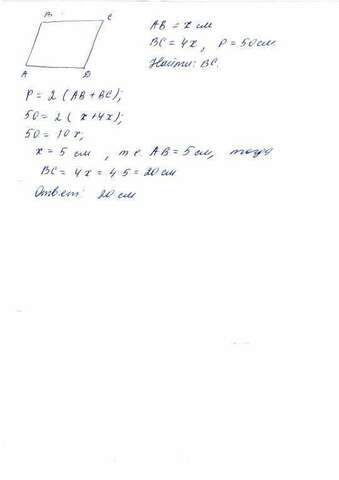 B C
AB = x см
BC = 4x, P = 50 см
Найти: BC.
A D
P = 2 (AB + BC);
50 = 2 (x + 4x);
50 = 10x;
x = 5 см, т.е. AB = 5 см, тогда
BC = 4x = 4·5 = 20 см
Ответ: 20 см